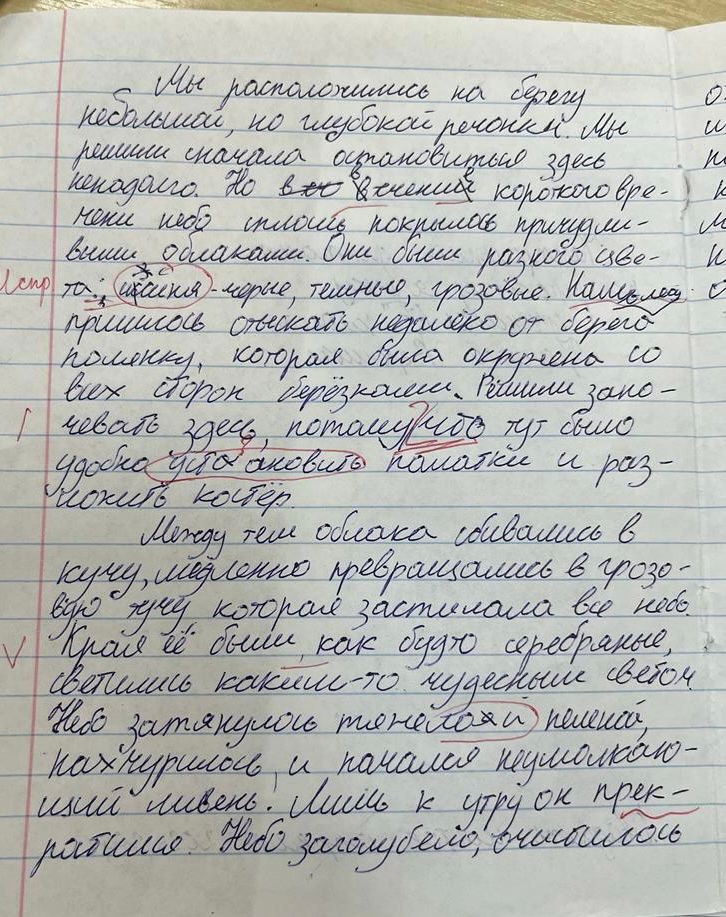 Мы расположились на берегу
небольшой, но глубокой речонки. Мы
решили сначала остановиться здесь
ненадолго. Но в течении короткого вре-
мени небо сплошь покрылось причудли-
выми облаками. Они были разного цве-
Iспр та: -черые, темные, грозовые. Нам
пришлось отыскать недалеко от берега
полянку, которая была окружена со
всех сторон берёзками. Решили зано-
чевать здесь, потому что тут было
удобно устаановить палатки и раз-
ложить костёр.
Между тем облака сбивались в
кучу, медленно превращались в грозо-
вую тучу, которая застилала все небо.
V Края её были, как будто серебряные,
светились каким-то чудесным светом.
Небо затянулось тяжелой пеленой,
нахмурилось, и начался неумолкаю-
щий ливень. Лишь к утру он прек-
ратился. Небо заголубело, очистилось